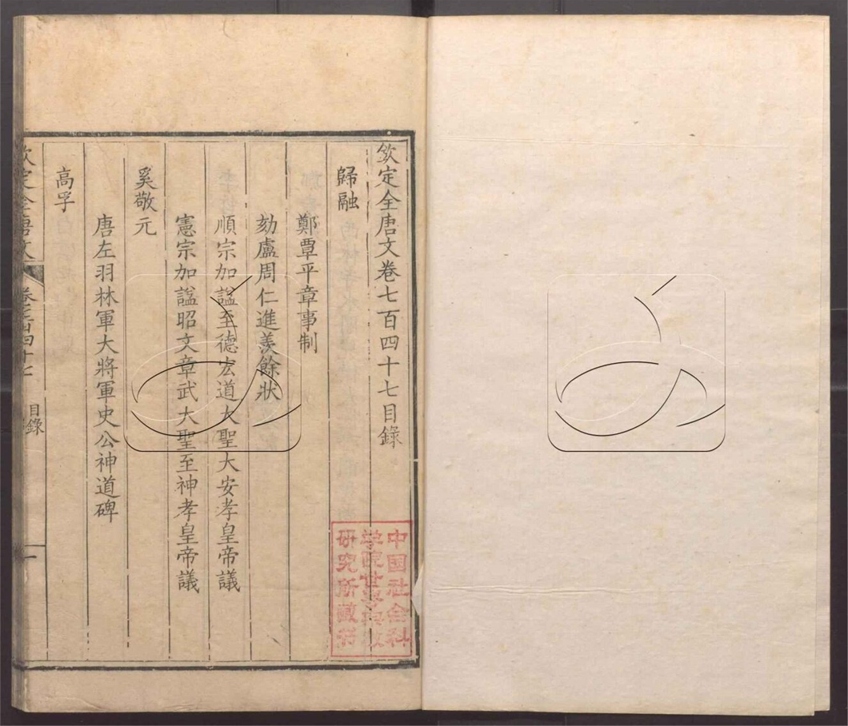 欽定全唐文卷七百四十七目錄
歸融
鄭覃平章事制
劾盧周仁進羨餘狀
順宗加諡至德宏道大聖大安孝皇帝議
憲宗加諡昭文章武大聖至神孝皇帝議
奚敬元
唐左羽林軍大將軍史公神道碑
高孚
欽定全唐文
卷七百四十七
目錄
一
中国社会科
学院世界宗教
研究所藏书